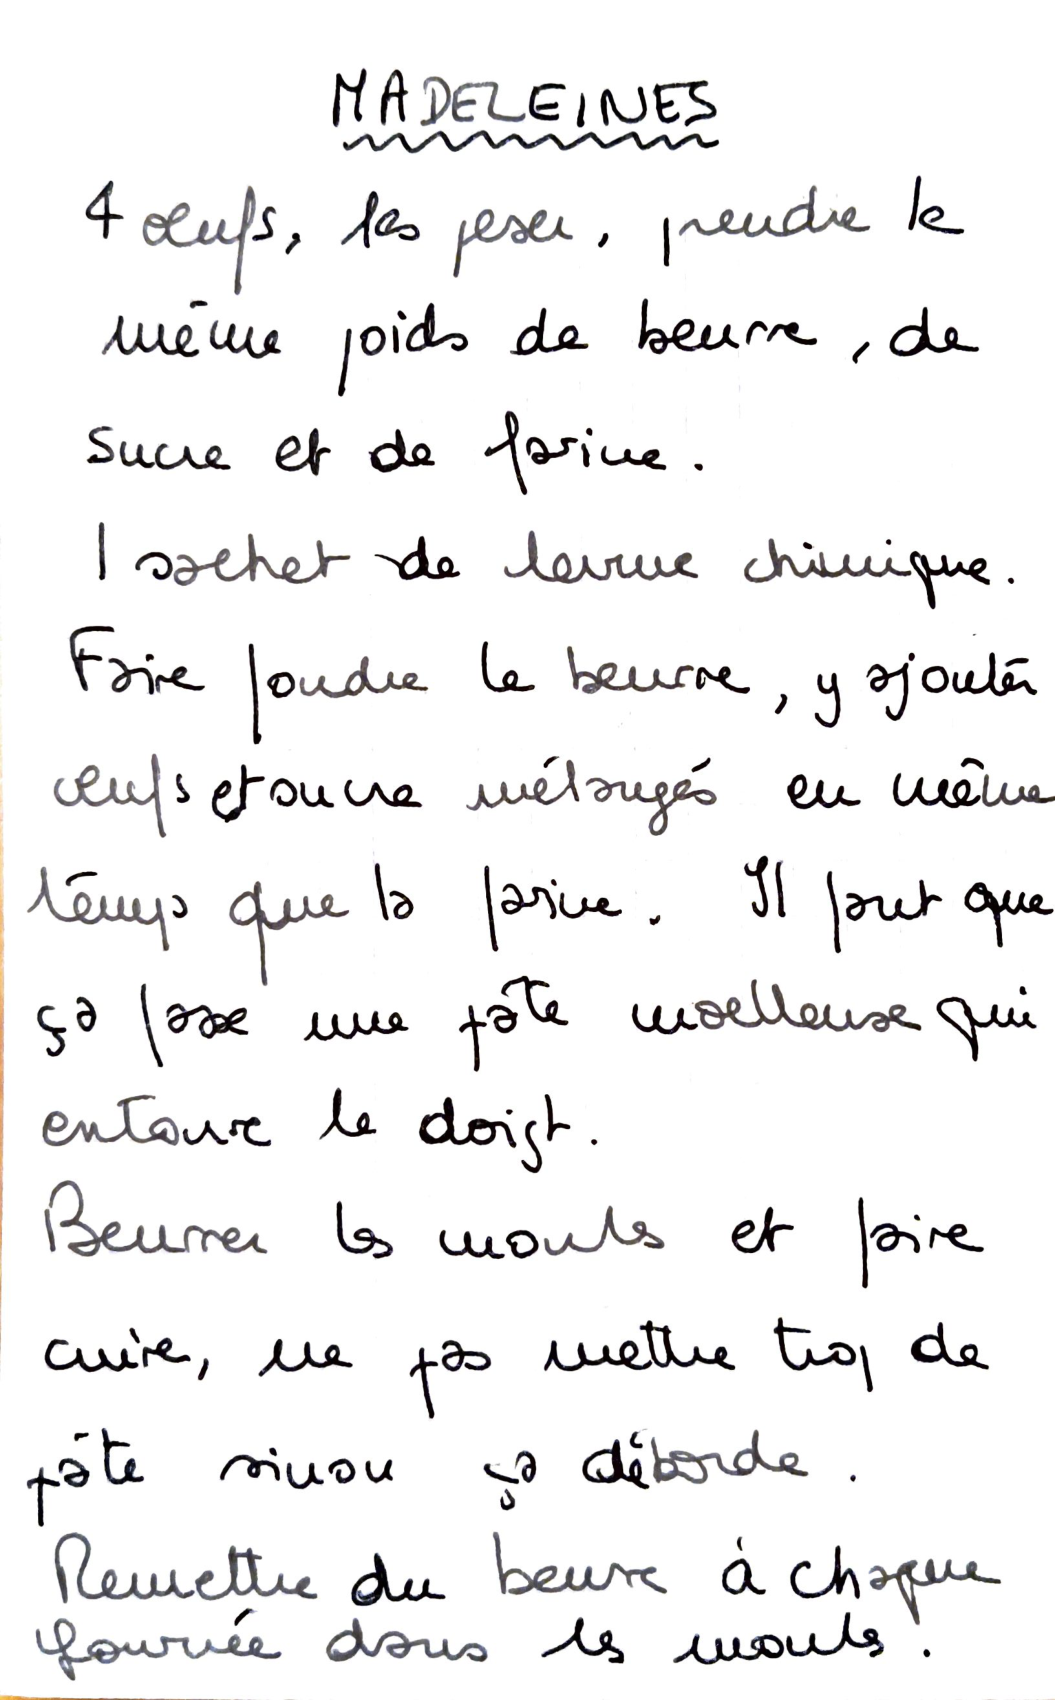 MADELEINES
4 œufs, les peser, prendre le
même poids de beurre, de
sucre et de farine.
1 sachet de levure chimique.
Faire fondre le beurre, y ajouter
œufs et sucre mélangés en même
temps que la farine. Il faut que
ça fasse une pâte moelleuse qui
entoure le doigt.
Beurrer les moules et faire
cuire, ne pas mettre trop de
pâte sinon ça déborde.
Remettre du beurre à chaque
fournée dans les moules.